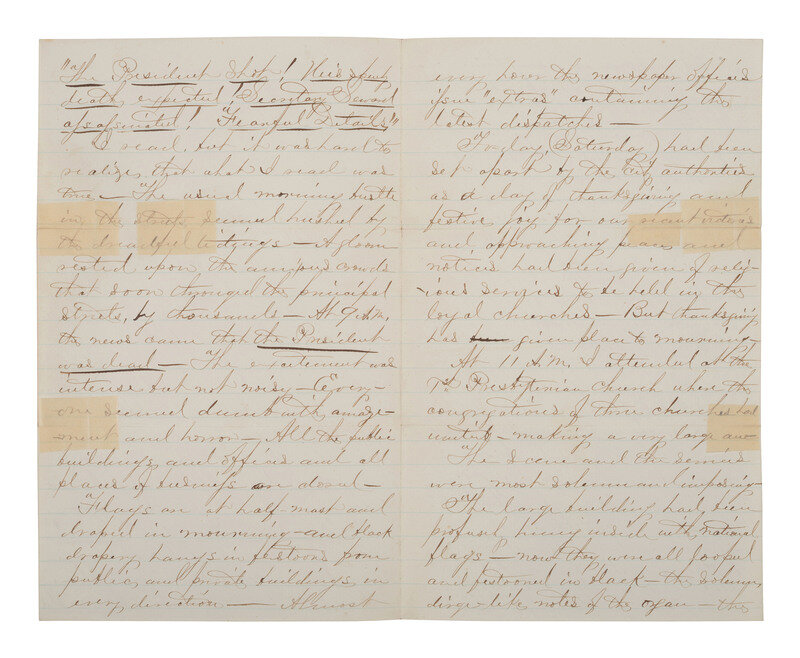 "The President Shot! His speedy
death expected! Secretary Seward
assassinated! "Fearful Details"
I read, but it was hard to
realize that what I read was
true – The usual morning bustle
in the streets seemed hushed by
the dreadful tidings – A gloom
rested upon the anxious crowds
that soon thronged the principal
streets, by thousands – At 9 A.M.
the news came that the President
was dead – The excitement was
intense but not noisy – Every-
one seemed dumb with amaze-
ment and horror – All the public
buildings and offices and all
places of business are closed –
Flags are at half-mast and
draped in mourning – and black
drapery hangs in festoons from
public and private buildings in
every direction – Almost
every hour the newspaper offices
issue "extras" containing the
latest dispatches –
Today (Saturday) had been
set apart by the City authorities
as a day of thanksgiving and
festive joy for our recent victories
and approaching peace and
notices had been given of relig-
ious services to be held in the
loyal churches – But thanksgiving
has given place to mourning –
At 11 A.M. I attended at the
Presbyterian Church where the
congregations of three churches had
united – making a very large
The scene and the services
were most solemn and imposing –
The large building had been
profusely hung inside with national
flags – now they were all looped
and festooned in black – the solemn,
dirge-like notes of the organ – the